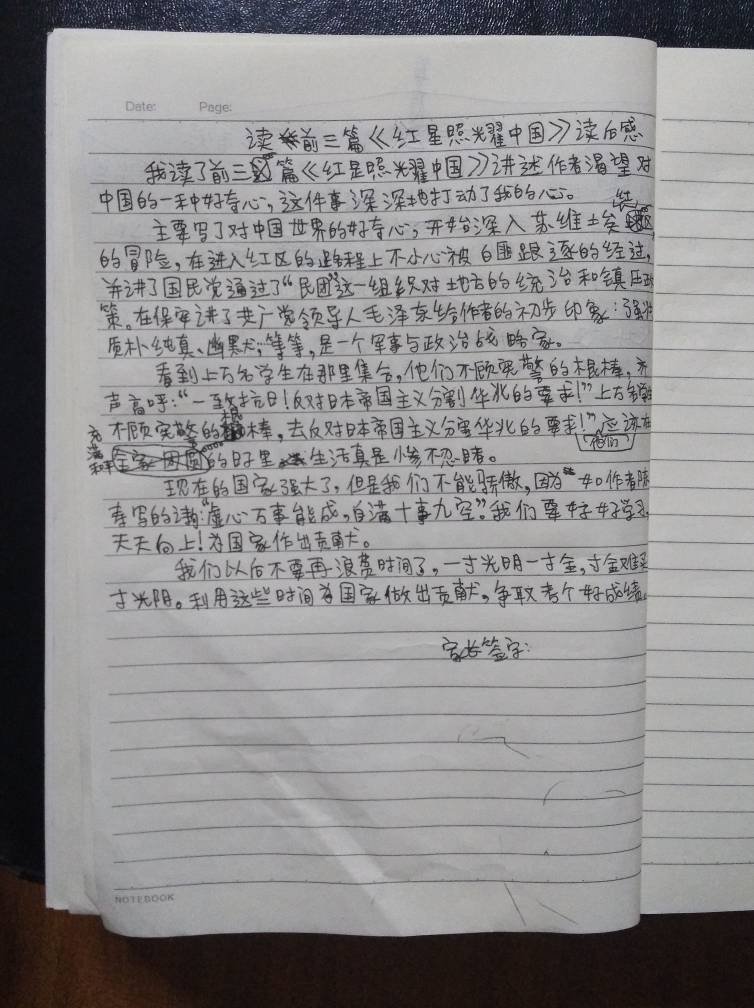 Date: Page:
读前三篇《红星照光耀中国》读后感
我读了前三篇《红星照光耀中国》讲述作者渴望对
中国的一种好奇心，这件事深深地打动了我的心。
主要写了对中国世界的好奇心，开始深入苏维埃红
的冒险，在进入红区的路程上不小心被白匪跟逐的经过，
并讲了国民党通过了“民团”这一组织对地方的统治和镇压政
策。在保安讲了共产党领导人毛泽东给作者的初步印象：强壮
质朴纯真、幽默，等等，是一个军事与政治战略家。
看到上万名学生在那里集合，他们不顾宪警的棍棒，齐
声高呼：“一致抗日！反对日本帝国主义分割华北的要求！”上万名学生
不顾宪警的棍棒，去反对日本帝国主义分割华北的要求！”应该在
他们
充满和平
全家团圆的日里生活真是惨不忍睹。
现在的国家强大了，但是我们不能骄傲，因为如作者陈
寿写的谢“虚心万事能成，自满十事九空”。我们要好好学习，
天天向上！为国家作出贡献。
我们以后不要再浪费时间了，一寸光阴一寸金，寸金难买
寸光阴。利用这些时间为国家做出贡献，争取考个好成绩。
家长签字：
NOTEBOOK